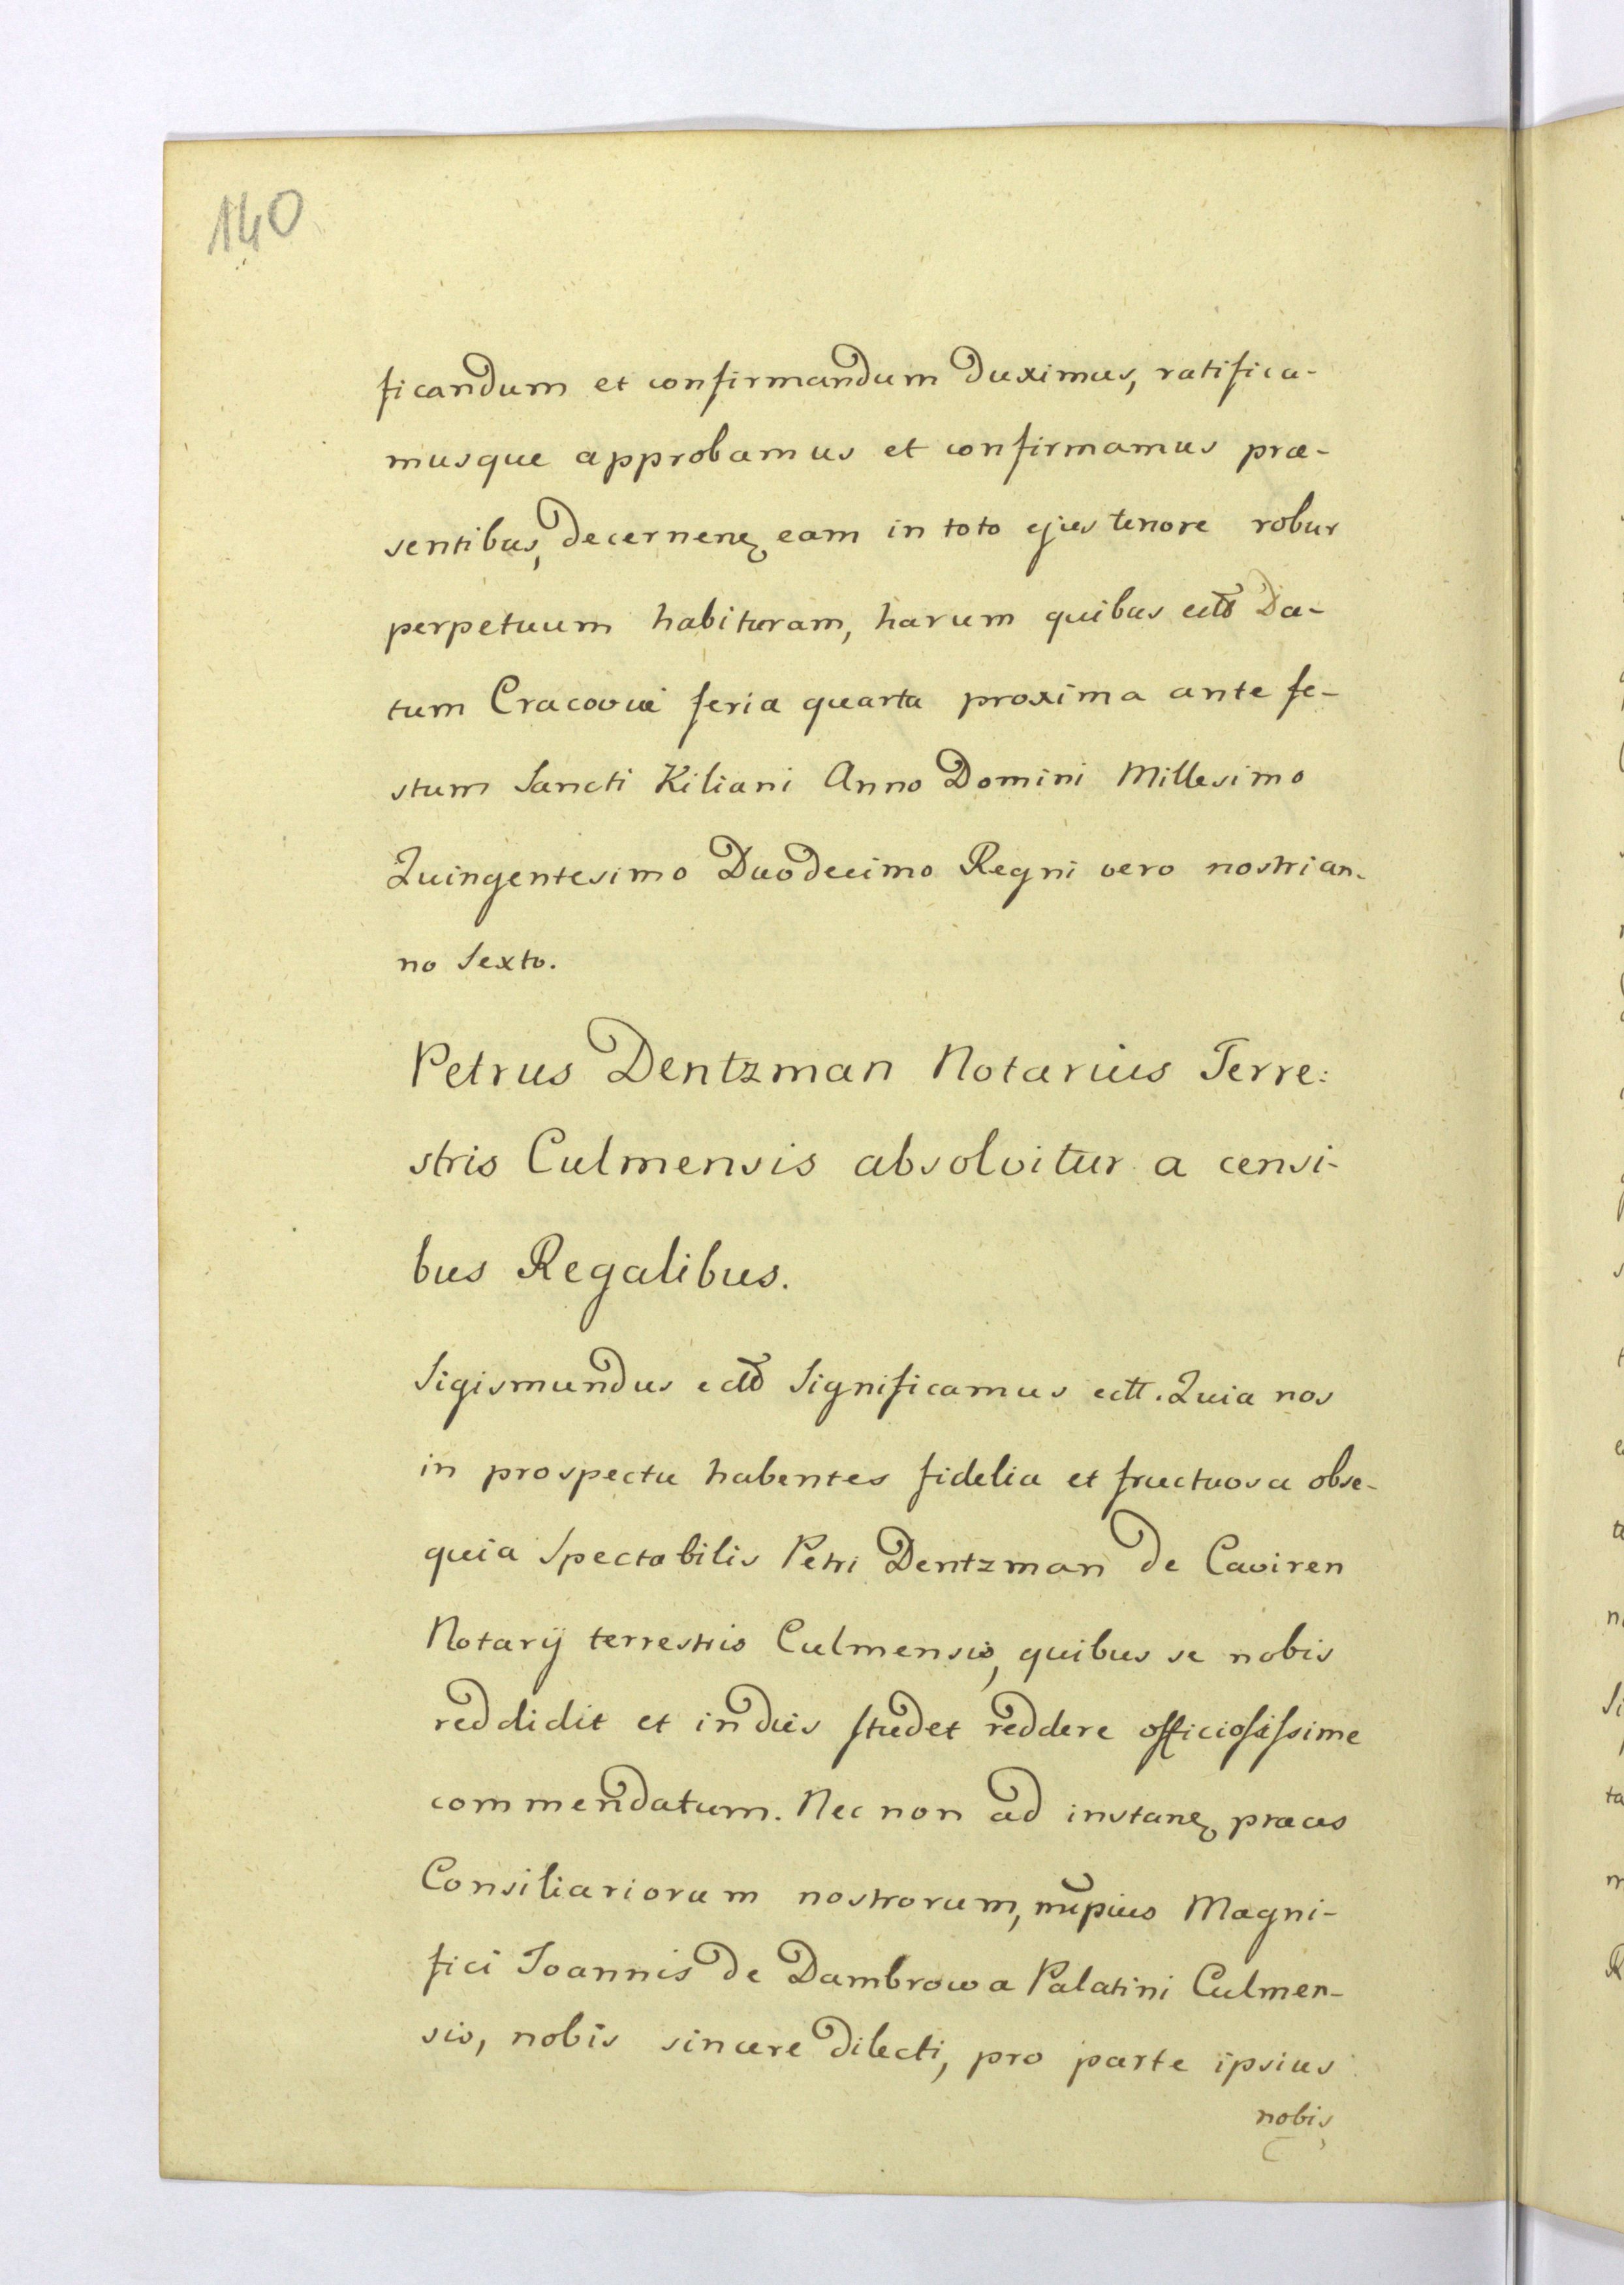 140
ficandum et confirmandum duximus, ratifica-
musque approbamus et confirmamus præ-
sentibus, decernenꝫ eam in toto ejus tenore robur
perpetuum habituram, harum quibus ectt Da-
tum Cracoviæ feria quarta proxima ante fe-
stum Sancti Kiliani Anno Domini Millesimo
Quingentesimo Duodecimo Regni vero nostri an-
no Sexto.
Petrus Dentzman Notarius Terre:
stris Culmensis absolvitur a censi-
bus Regalibus.
Sigismundus ectt Significamus ectt. Quia nos
in prospectu habentes fidelia et fructuosa obse-
quia Spectabilis Petri Dentzman de Caviren
Notarij terrestris Culmensis, quibus se nobis
reddidit et indies studet reddere officiosissime
commendatum. Nec non ad instanꝫ præces
Consiliariorum nostrorum, Magni-
fici Joannis de Dambrowa Palatini Culmen-
sis, nobis sincere dilecti, pro parte ipsius
nobis